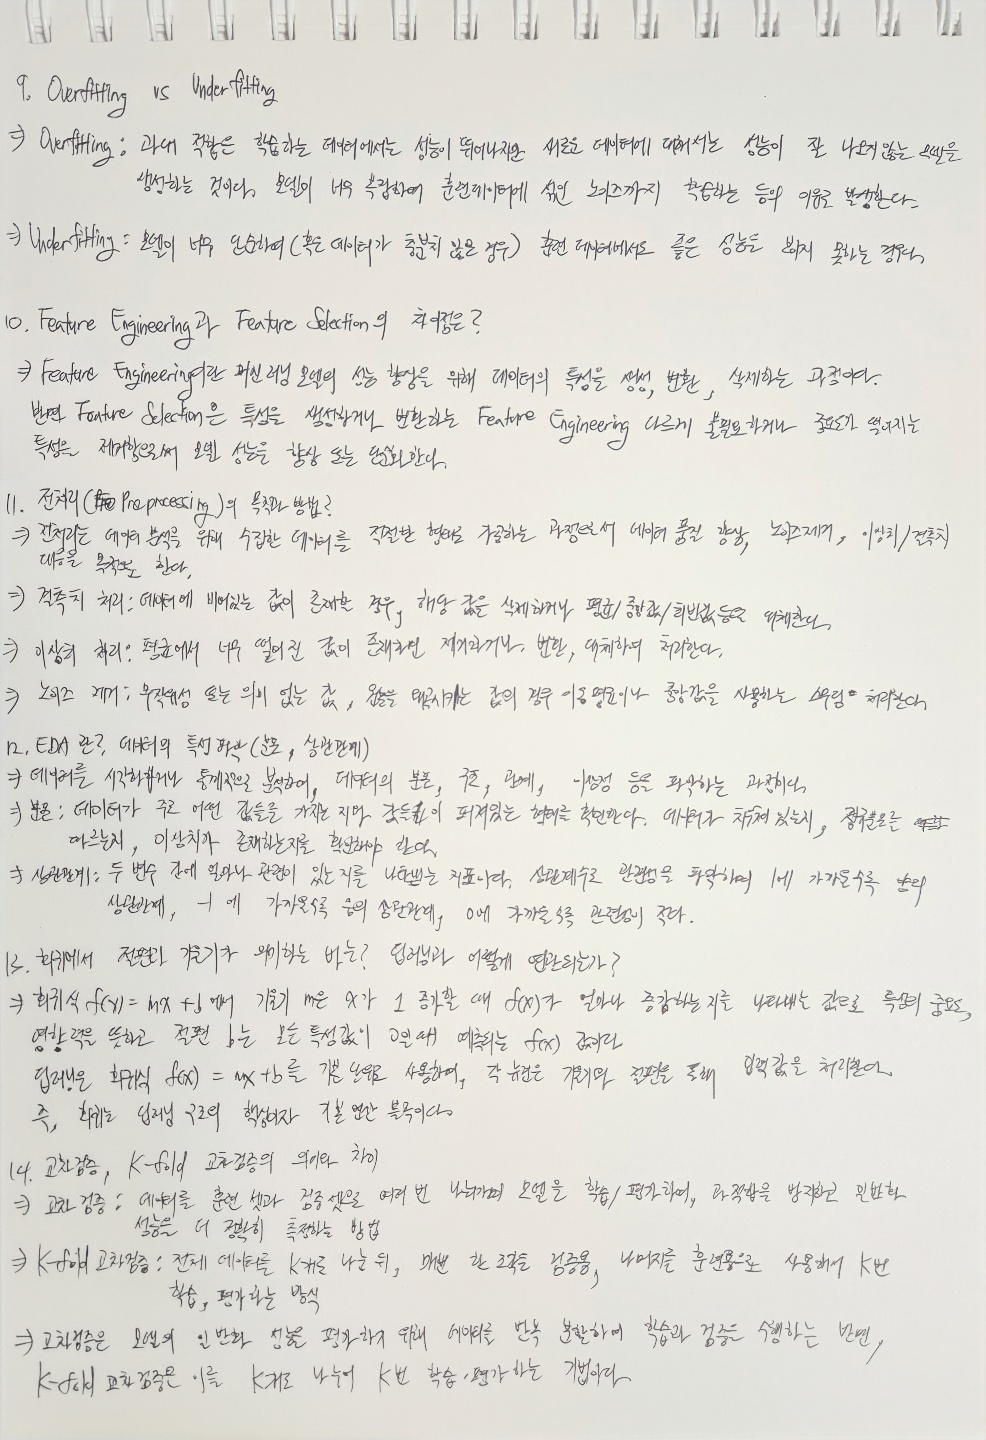 9. Overfitting vs Underfitting
⇒ Overfitting : 과대 적합은 학습하는 데이터에서는 성능이 뛰어나지만 새로운 데이터에 대해서는 성능이 잘 나오지 않는 모델을
생성하는 것이다. 모델이 너무 복잡하여 훈련데이터에 섞인 노이즈까지 학습하는 등의 이유로 발생한다.
⇒ Underfitting : 모델이 너무 단순하여(혹은 데이터가 충분치 않은 경우) 훈련 데이터에서도 좋은 성능을 보이지 못하는 경우다.
10. Feature Engineering과 Feature Selection의 차이점은?
⇒ Feature Engineering이란 머신러닝 모델의 성능 향상을 위해 데이터의 특성을 생성, 변환, 삭제하는 과정이다.
반면 Feature Selection은 특성을 생성하거나 변환하는 Feature Engineering 다르게 불필요하거나 중요도가 떨어지는
특성을 제거함으로써 모델 성능을 향상 또는 단순화한다.
11. 전처리(Preprocessing)의 목적과 방법?
⇒ 전처리는 데이터 분석을 위해 수집한 데이터를 적절한 형태로 가공하는 과정으로서 데이터 품질 향상, 노이즈제거, 이상치/결측치
대응을 목적으로 한다.
⇒ 결측치 처리 : 데이터에 비어있는 값이 존재할 경우, 해당 값을 삭제하거나 평균/중앙값/최빈값 등으로 대체한다.
⇒ 이상치 처리 : 평균에서 너무 떨어진 값이 존재하면 제거하거나 변환, 대체하여 처리한다.
⇒ 노이즈 제거 : 무작위성 또는 의미 없는 값, 을 값의 경우 이동평균이나 중앙값을 사용하는 스무딩 처리한다.
12. EDA란? 데이터의 특성 파악(분포, 상관관계)
⇒ 데이터를 시각화하거나 통계적으로 분석하여, 데이터의 분포, 구조, 관계, 이상점 등을 파악하는 과정이다.
⇒ 분포 : 데이터가 주로 어떤 값들을 가지는 지와 값들이 퍼져있는 형태를 확인한다. 데이터가 치우쳐 있는지, 정규분포를
따르는지, 이상치가 존재하는지를 확인해야 한다.
⇒ 상관관계 : 두 변수 간에 얼마나 관련이 있는지를 나타내는 지표이다. 상관계수로 관련성을 파악하며 1에 가까울수록 양의
상관관계, -1에 가까울수록 음의 상관관계, 0에 가까울수록 관련성이 적다.
13. 회귀에서 절편과 기울기가 의미하는 바는? 딥러닝과 어떻게 연관되는가?
⇒ 회귀식 f(x) = mx + b에서 기울기 m은 x가 1 증가할 때 f(x)가 얼마나 증감하는지를 나타내는 값으로 특성의 중요도,
영향력을 뜻하고 절편 b는 모든 특성값이 0일 때 예측되는 f(x) 값이다
딥러닝은 회귀식 f(x) = mx+b를 기본 단위로 사용하며, 각 뉴런은 기울기와 절편을 통해 입력값을 처리한다.
즉, 회귀는 딥러닝 구조의 핵심이자 기본 연산 블록이다.
14. 교차검증, K-fold 교차검증의 의미와 차이
⇒ 교차 검증 : 데이터를 훈련 셋과 검증 셋으로 여러 번 나눠가며 모델을 학습/평가하여, 과적합을 방지하고 일반화
성능을 더 정확히 측정하는 방법
⇒ K-fold 교차검증 : 전체 데이터를 K개로 나눈 뒤, 매번 한 조각을 검증용, 나머지를 훈련용으로 사용해서 K번
학습, 평가하는 방식
⇒ 교차검증은 모델의 일반화 성능을 평가하기 위해 데이터를 반복 분할하여 학습과 검증을 수행하는 반면,
K-fold 교차검증은 이를 K개로 나누어 K번 학습·평가하는 기법이다.